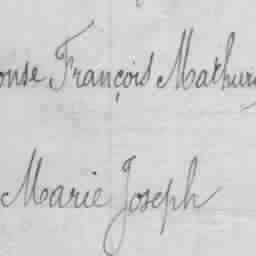 onse François Mathur
Marie Joseph